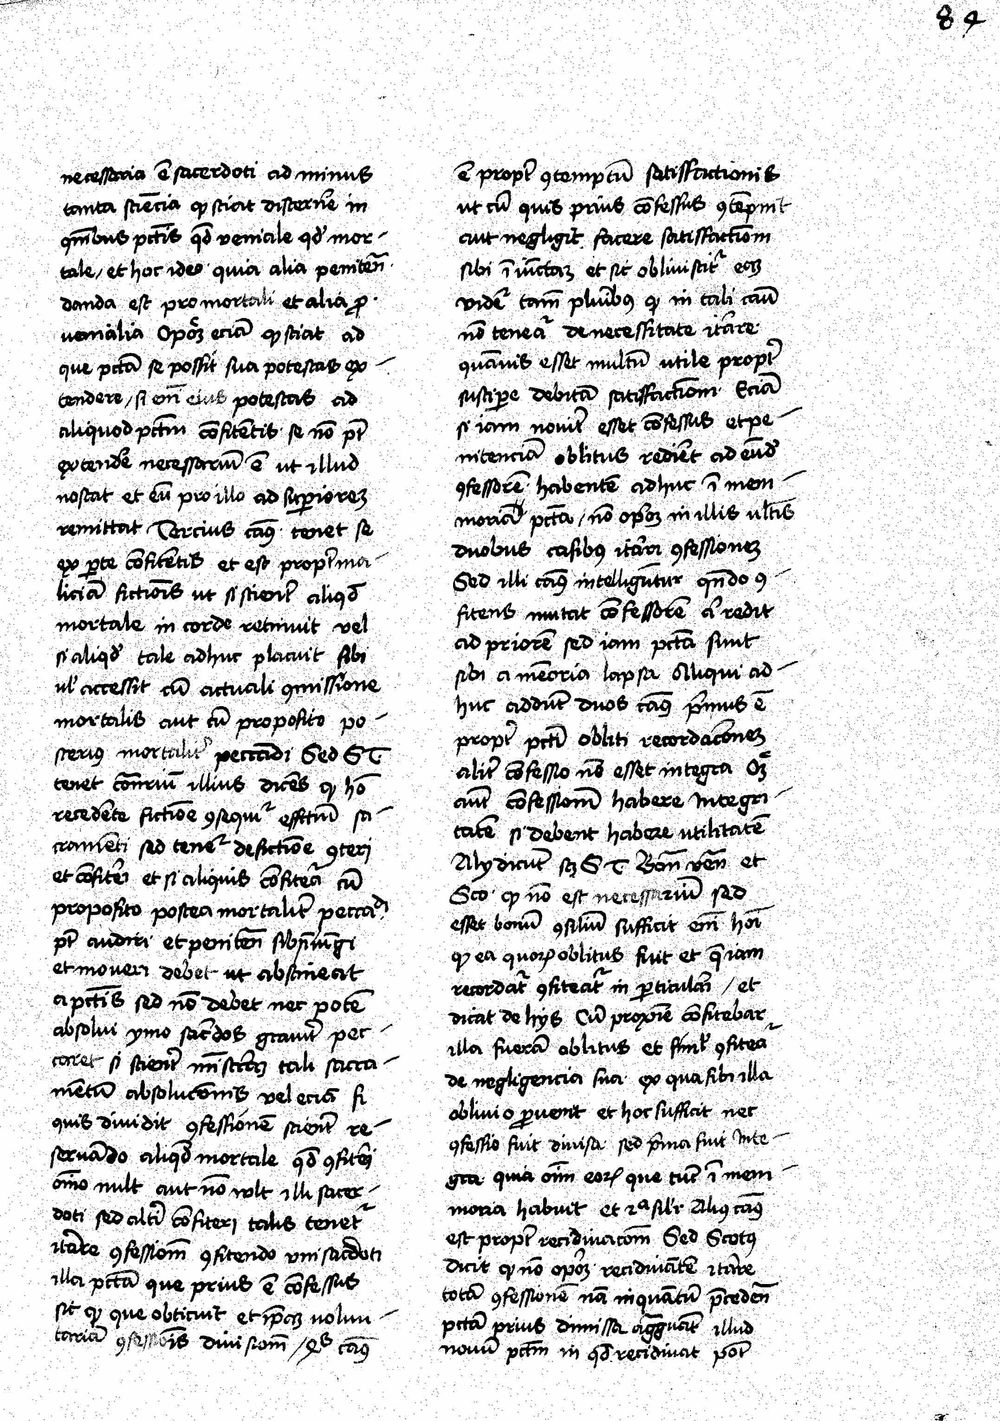 84
necessaria ē sacerdoti ad minus
tanta sciēcia ꝙ sciat discernē in
qͥbus pctīs qd̄ veniale qd̄ mor-
tale / et hoc ideo quia alia penitēn
danda est pro mortali et alia ꝓ
uenialia Opoꝫ eciā ꝙ sciat ad
que pctā se possit sua potestas ex-
tendere / si eni eius potestas ad
aliquod pctm̄ cōfitētis se nō pt̄
extendē necessariū ē ut illud
noscat et eū pro illo ad supiorez
remittat Tercius casꝰ tenet se
ex pte cōfitētis et est propt̄ ma-
liciā fictiōis ut si sciēt̄ aliqd̄
mortale in corde retinuit vel
si aliqd̄ tale adhuc placuit sibi
ul̄ accessit cū actuali ꝯmissione
mortalis aut cū proposito po-
sterius mortalit̄ peccādi Sed S T
tenet cōtrariū illius dicēs ꝙ hō
recedēte fictiōe ꝯsequit̄ effectū sa-
cramēti sed tenet̄ de fictiōe ꝯteri
et cōfitēi et si aliquis cōfiteat̄ cū
proposito postea mortalit̄ peccādi
pt̄ audiri et penitēn sibi iniūgi
et moueri debet ut abstineat
a pctīs sed nō debet nec potē
absolui ymo sac̄dos grauit̄ pec-
caret si sciēt̄ mīstraꝫ tali sacra-
mētū absolucōnis vel eciā si
quis diuidit ꝯfessionē sciēt̄ re-
seruādo aliqd̄ mortale qd̄ ꝯfitēi
oīno nult aut nō vult illi sacer-
doti sed alt̄i cōfiteri talis tenet̄
itāre ꝯfessiom̄ ꝯfitendo vni sacdoti
illa pctā que prius ē cōfessus
sic ꝙ que obticuit et ip̄aꝫ uolun-
tariā ꝯfessiōis diuisiom̄ / Qͬtꝰ casꝰ
ē propt̄ ꝯtemptū satisfactionis
ut cū quis prius cōfessus ꝯtēpnit
aut negligit facere satisfactiom̄
sibi īiūctaꝫ et sic obliuiscit̄ eaꝫ
vidēt̄ tam̄ pluribꝰ ꝙ in tali casū
nō teneat̄ de necessitate itāre
quāuis esset multū utile propt̄
suscipe debitā satisfactiom̄ Eciā
si iam nouit̄ esset cōfessus et pe-
nitenciā oblitus rediret ad eūd̄
ꝯfessorē habentē adhuc ī mem-
moriā pctā / nō opoꝫ in illis ult̄is
duobus casibꝰ itāri ꝯfessionez
Sed illi casꝰ intelligūtur qn̄do ꝯ-
fitens mutat cōfessorē ut̄ redit
ad priorē sed iam pctā sunt
sibi a memoria lapsa Aliqui ad-
huc addūt duos casꝰ pͥmus ē
propt̄ pcti obliti recordacōnez
alit̄ cōfessio nō esset integra Oꝫ
aut̄ cōfessionē habere integri-
tatē si debent habere utilitatē
Alij dicūt scꝫ S T Bon̄ ven̄ et
Sco ꝙ nō est necessariū sed
esset bonū ꝯsiliū sufficit eni hōi
ꝙ ea quoꝝ oblitus fuit et q̄ iam
recordat̄ ꝯfiteat̄ in pticulari / et
dicat de hijs Cū proxie cōfitebar
illa fuerā oblitus et similr̄ ꝯfiteat̄
de negligencia sua ex qua sibi illa
obliuio puenit et hoc sufficit nec
ꝯfessio fuit diuisa sed pͥma fuit inte-
gra quia oīm eoꝝ que tūc ī mem
moria habuit et 2ᵃ silr̄ Aliꝰ casꝰ
est propt̄ recidiuacom̄ Sed Scotꝰ
dicit ꝙ nō opoꝫ recidiuātē itāre
totā ꝯfessionē nā inquātū p̄cedēn
pctā prius dimissa aggrauāt illud
nouū pctm̄ in qd̄ recidiuat pot̄